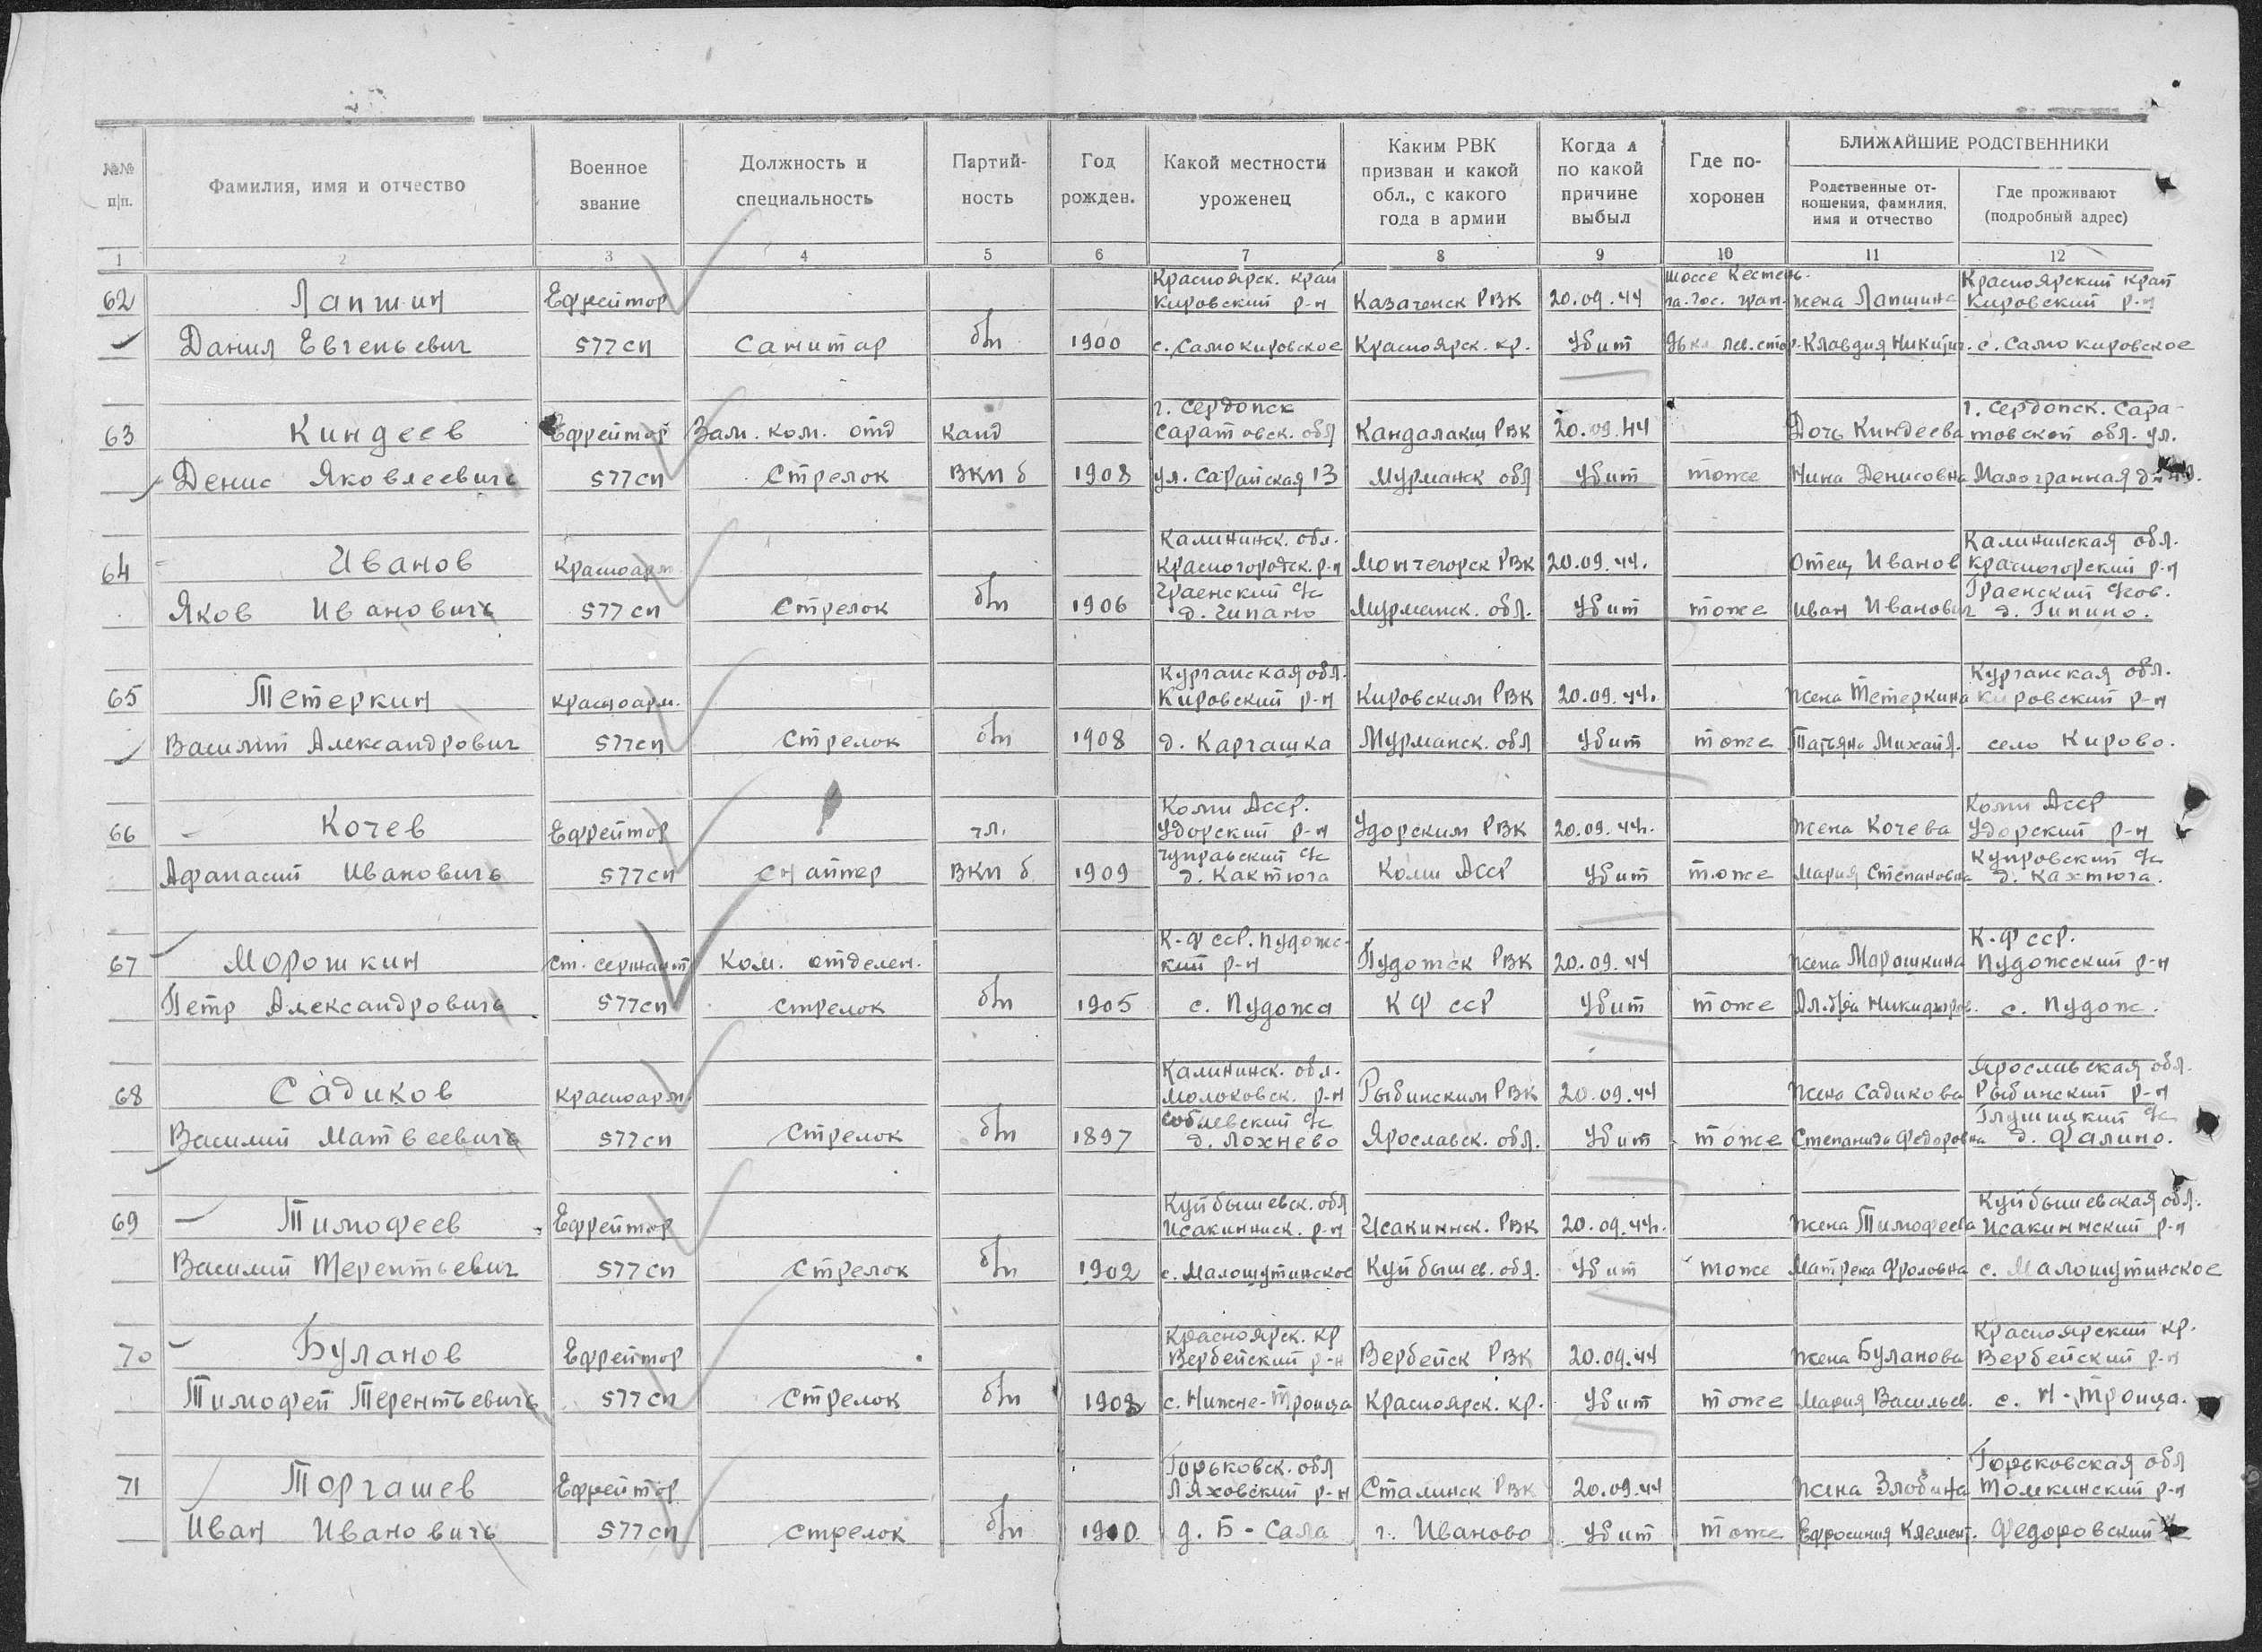 №№ п|п.
Фамилия, имя и отчество
Военное звание
Должность и специальность
Партий-ность
Год рожден.
Какой местности уроженец
Каким РВК призван и какой обл., с какого года в армии
Когда и по какой причине выбыл
Где по-хоронен
БЛИЖАЙШИЕ РОДСТВЕННИКИ
Родственные от-ношения, фамилия, имя и отчество
Где проживают (подробный адрес)
1 2 3 4 5 6 7 8 9 10 11 12
Красноярск. край шоссе Кестень- Красноярский край
62 Лапшин Ефрейтор Кировский р-н Казаченск РВК 20.09.44 га. гос. гран. жена Лапшина Кировский р-н
Данил Евгеньевич 577 сп Санитар б/п 1900 с. Самокировское Красноярск. кр. Убит лев. стор. Клавдия Никитич. с. Само кировское
г. Сердопск г. Сердопск. Сара-
63 Киндеев Ефрейтор Зам. ком. отд канд Саратовск. обл Кандалакш РВК 20.09.44 Дочь Киндеева товской обл. ул.
Денис Яковлеевичь 577 сп Стрелок ВКП б 1908 ул. Сарайская 13 Мурманск обл Убит тоже Нина Денисовна Малогранная
Калининск. обл. Калининская обл.
64 Иванов Красноарм Красногородск. р-н Мончегорск РВК 20.09.44. Отец Иванов Красногорский р-н
Граенский с/с Граенский с/сов.
Яков Ивановичь 577 сп Стрелок б/п 1906 д. Гипано Мурманск. обл. Убит тоже Иван Иванович д. Гипино.
Курганская обл. Курганская обл.
65 Тетеркин красноарм. Кировский р-н Кировским РВК 20.09.44. жена Тетеркина кировский р-н
Василий Александрович 577 сп Стрелок б/п 1908 д. Каргашка Мурманск. обл Убит тоже Татьяна Михайл. село Кирово.
Коми АССР. Коми АССР
66 Кочев Ефрейтор чл. Удорский р-н Удорским РВК 20.09.44. Жена Кочева Удорский р-н
Чуправский с/с Купровский с/с
Афанасий Ивановичь 577 сп снайпер ВКП б 1909 д. Кактюга Коми АССР Убит тоже Мария Степановна д. Кахтюга.
К-Ф ССР. Пудожс- К-Ф ССР.
67 Морошкин ст. сержант Ком. отделен. кий р-н Пудожск РВК 20.09.44 жена Марошкина Пудожский р-н
Петр Александровичь 577 сп стрелок б/п 1905 с. Пудожа К Ф ССР Убит тоже Никифоров. с. Пудож.
Калининск. обл. Ярославская обл.
68 Садиков красноарм. Молоковск. р-н Рыбинским РВК 20.09.44 жена Садикова Рыбинский р-н
с/с Глушицкий с/с
Василий Матвеевичь 577 сп Стрелок б/п 1897 д. Лохнево Ярославск. обл. Убит тоже Степанида Федоровна д. Фалино.
Куйбышевск. обл Куйбышевская обл.
69 Тимофеев Ефрейтор Исакиннск. р-н Исакиннск. РВК 20.09.44. жена Тимофеева Исакиннский р-н
Василий Терентьевич 577 сп Стрелок б/п 1902 с. Малошутинское Куйбышев. обл. Убит тоже Матрека Фроловна с. Малошутинское
Красноярск. кр Красноярский кр.
70 Буланов Ефрейтор Вербейский р-н Вербейск РВК 20.09.44 жена Буланова Вербейский р-н
Тимофей Терентьевичь 577 сп Стрелок б/п 1908 с. Нижне-Троица Красноярск. кр. Убит тоже Мария Васильев. с. Н-Троица.
Горьковск. обл Горьковская обл
71 Торгашев Ефрейтор Ляховский р-н Сталинск РВК 20.09.44 жена Злобина Томкинский р-н
Иван Ивановичь 577 сп стрелок б/п 1900. д. Б-Сала г. Иваново Убит тоже Ефросиния Клемент. Федоровский